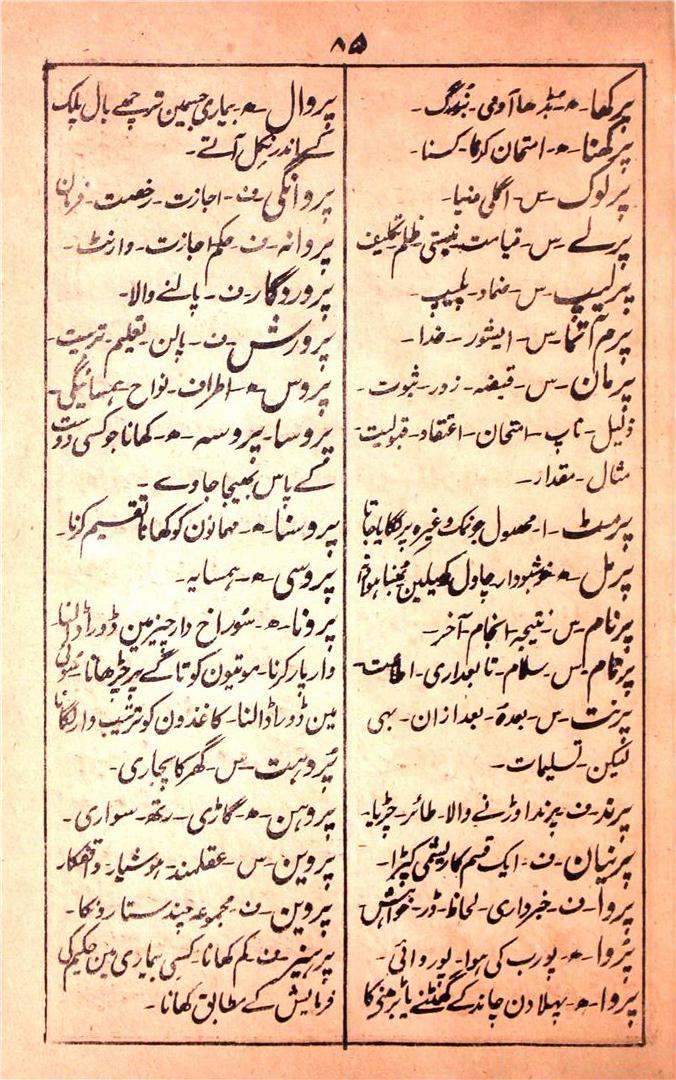 ۸۵
پرکھا - ھ - بڈھا آدمی - بزرگ -
پرکھنا - ھ - امتحان کرنا - کسنا -
پرلوک - س - اگلی دنیا -
پرلے - س - قیامت - نیستی - ظلم - تکلیف
پرلیپ - س - ضماد - پلیپ -
پرم آتما - س - ایشور - خدا -
پرمان - س - قبضہ - زور - ثبوت -
دلیل - ناپ - امتحان - اعتقاد - قبولیت -
مثال - مقدار -
پرمٹ - ا - محصول جو نمک وغیرہ پر لگایا جاتا
پرمل - ھ - خوشبودار - چاول کھیلین بھنا ہوا
پرنام - س - نتیجہ - انجام - آخر -
پرنام - س - سلام - تابعداری - اطاعت -
پرنت - س - بعدہٗ - بعد ازان - بھی
لیکن - تسلیمات -
پرند - ف - پرندا وڑنے والا - طائر - چڑیا -
پرنیان - ف - ایک قسم کا ریشمی کپڑا -
پروا - ف - خبرداری - لحاظ - ڈر - خواہش
پُروا - ھ - پورب کی ہوا - پوروائی -
پروا - ھ - پہلا دن چاند کے گھٹنے یا بڑھنے کا
پروال - ھ - بیماری جسمین ترچھے بال پلک
کے اندر نکل آتے -
پروانگی - ف - اجازت - رخصت - فرمان
پروانہ - ف - حکم اجازت - وارنٹ -
پروردگار - ف - پالنے والا -
پرورش - ف - پالن - تعلیم - تربیت -
پروس - ھ - اطراف - نواح - ہمسائیگی -
پروسا - پروسہ - ھ - کھانا جو کسی دوست
کے پاس بھیجا جاوے -
پروسنا - ھ - مہمانون کو کھانا تقسیم کرنا -
پروسی - ھ - ہمسایہ -
پرونا - ھ - سُوراخ دار چیز مین ڈورا ڈالنا
وار پار کرنا - موتیون کو تاگے پر چڑھانا سُوئی
مین ڈورا ڈالنا - کاغذون کو ترتیب وار لگانا
پُروہت - س - گھر کا پجاری -
پروہن - ھ - گاڑی - رتھ - سواری -
پروین - س - عقلمند - ہوشیار - واقفکار
پروین - ف - مجموعہ چند ستارونکا -
پرہیز - ف - کم کھانا - کسی بیماری مین حکیم کی
فرمایش کے مطابق کھانا -